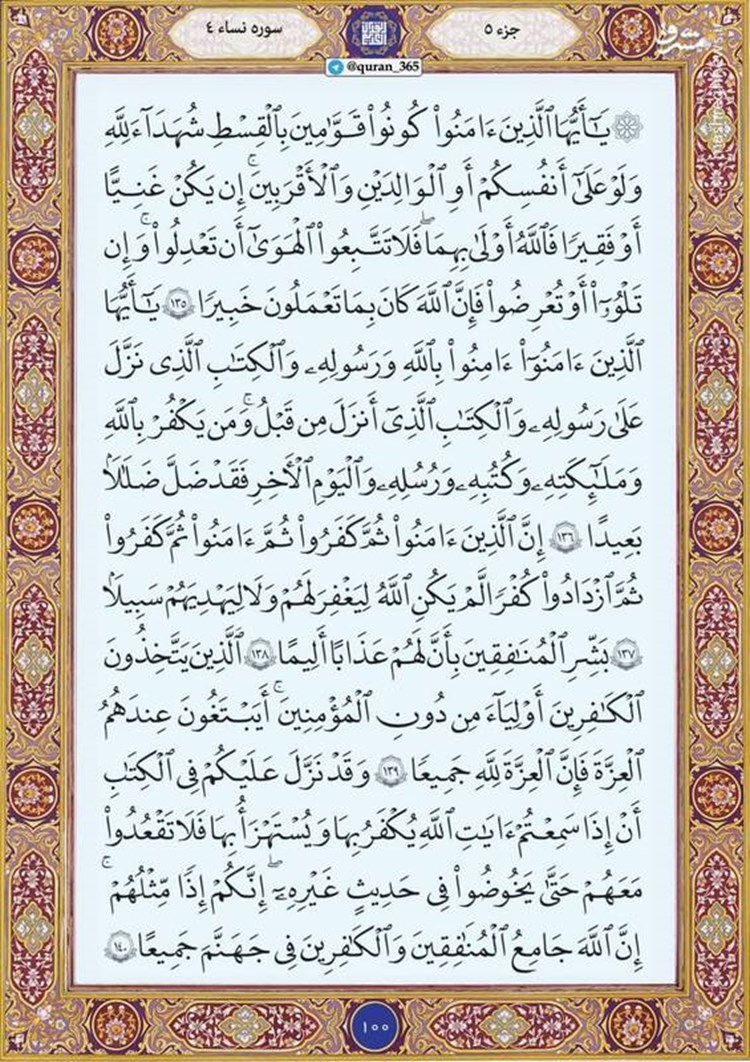 جزء ۵
سوره نساء ٤
مشرق
@quran_365
يَـٰٓأَيُّهَا ٱلَّذِينَ ءَامَنُوا۟ كُونُوا۟ قَوَّٰمِينَ بِٱلْقِسْطِ شُهَدَآءَ لِلَّهِ
وَلَوْ عَلَىٰٓ أَنفُسِكُمْ أَوِ ٱلْوَٰلِدَيْنِ وَٱلْأَقْرَبِينَ ۚ إِن يَكُنْ غَنِيًّا
أَوْ فَقِيرًا فَٱللَّهُ أَوْلَىٰ بِهِمَا ۖ فَلَا تَتَّبِعُوا۟ ٱلْهَوَىٰٓ أَن تَعْدِلُوا۟ ۚ وَإِن
تَلْوُۥٓا۟ أَوْ تُعْرِضُوا۟ فَإِنَّ ٱللَّهَ كَانَ بِمَا تَعْمَلُونَ خَبِيرًا ١٣٥ يَـٰٓأَيُّهَا
ٱلَّذِينَ ءَامَنُوٓا۟ ءَامِنُوا۟ بِٱللَّهِ وَرَسُولِهِۦ وَٱلْكِتَـٰبِ ٱلَّذِى نَزَّلَ
عَلَىٰ رَسُولِهِۦ وَٱلْكِتَـٰبِ ٱلَّذِىٓ أَنزَلَ مِن قَبْلُ ۚ وَمَن يَكْفُرْ بِٱللَّهِ
وَمَلَـٰٓئِكَتِهِۦ وَكُتُبِهِۦ وَرُسُلِهِۦ وَٱلْيَوْمِ ٱلْـَٔاخِرِ فَقَدْ ضَلَّ ضَلَـٰلًۢا
بَعِيدًا ١٣٦ إِنَّ ٱلَّذِينَ ءَامَنُوا۟ ثُمَّ كَفَرُوا۟ ثُمَّ ءَامَنُوا۟ ثُمَّ كَفَرُوا۟
ثُمَّ ٱزْدَادُوا۟ كُفْرًا لَّمْ يَكُنِ ٱللَّهُ لِيَغْفِرَ لَهُمْ وَلَا لِيَهْدِيَهُمْ سَبِيلًۢا
١٣٧ بَشِّرِ ٱلْمُنَـٰفِقِينَ بِأَنَّ لَهُمْ عَذَابًا أَلِيمًا ١٣٨ ٱلَّذِينَ يَتَّخِذُونَ
ٱلْكَـٰفِرِينَ أَوْلِيَآءَ مِن دُونِ ٱلْمُؤْمِنِينَ ۚ أَيَبْتَغُونَ عِندَهُمُ
ٱلْعِزَّةَ فَإِنَّ ٱلْعِزَّةَ لِلَّهِ جَمِيعًا ١٣٩ وَقَدْ نَزَّلَ عَلَيْكُمْ فِى ٱلْكِتَـٰبِ
أَنْ إِذَا سَمِعْتُمْ ءَايَـٰتِ ٱللَّهِ يُكْفَرُ بِهَا وَيُسْتَهْزَأُ بِهَا فَلَا تَقْعُدُوا۟
مَعَهُمْ حَتَّىٰ يَخُوضُوا۟ فِى حَدِيثٍ غَيْرِهِۦٓ ۖ إِنَّكُمْ إِذًا مِّثْلُهُمْ ۗ
إِنَّ ٱللَّهَ جَامِعُ ٱلْمُنَـٰفِقِينَ وَٱلْكَـٰفِرِينَ فِى جَهَنَّمَ جَمِيعًا ١٤٠
١٠٠